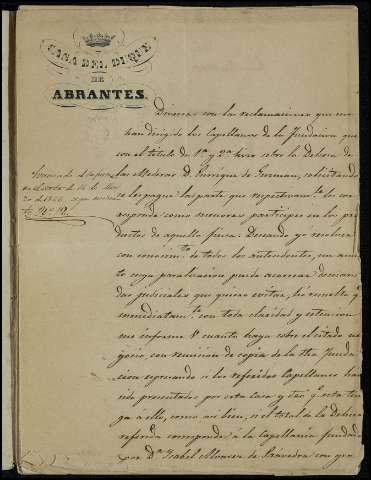 CASA DEL DUQUE
DE
ABRANTES.
Diversas son las reclamaciones que me
han dirigido los Capellanes de la Fundacion que
con el titulo de 1ª y 2ª hizo sobre la Dehesa de
las Medras D. Enrique de Guzman, solicitando
se les pague la parte que respectivamte les cor
responde como menores participes en los pro
ductos de aquella finca. Deseando yo resolver
con conocimto de todos los antecedentes, un asun
to cuya paralizacion pueda acarrear deman
das judiciales que quiero evitar, he resuelto q.
inmediatamte con toda claridad y estension
me informe V. cuanto haya sobre el citado ne
gocio, con remision de copia de la dha funda
cion espresando si los referidos Capellanes han
sido presentados por esta casa y dro q. esta ten
ga á ello, como asi bien, si el total de la Dehesa
referida corresponde á la Capellania fundada
por Dª Isabel Alvarez de Saavedra con gra